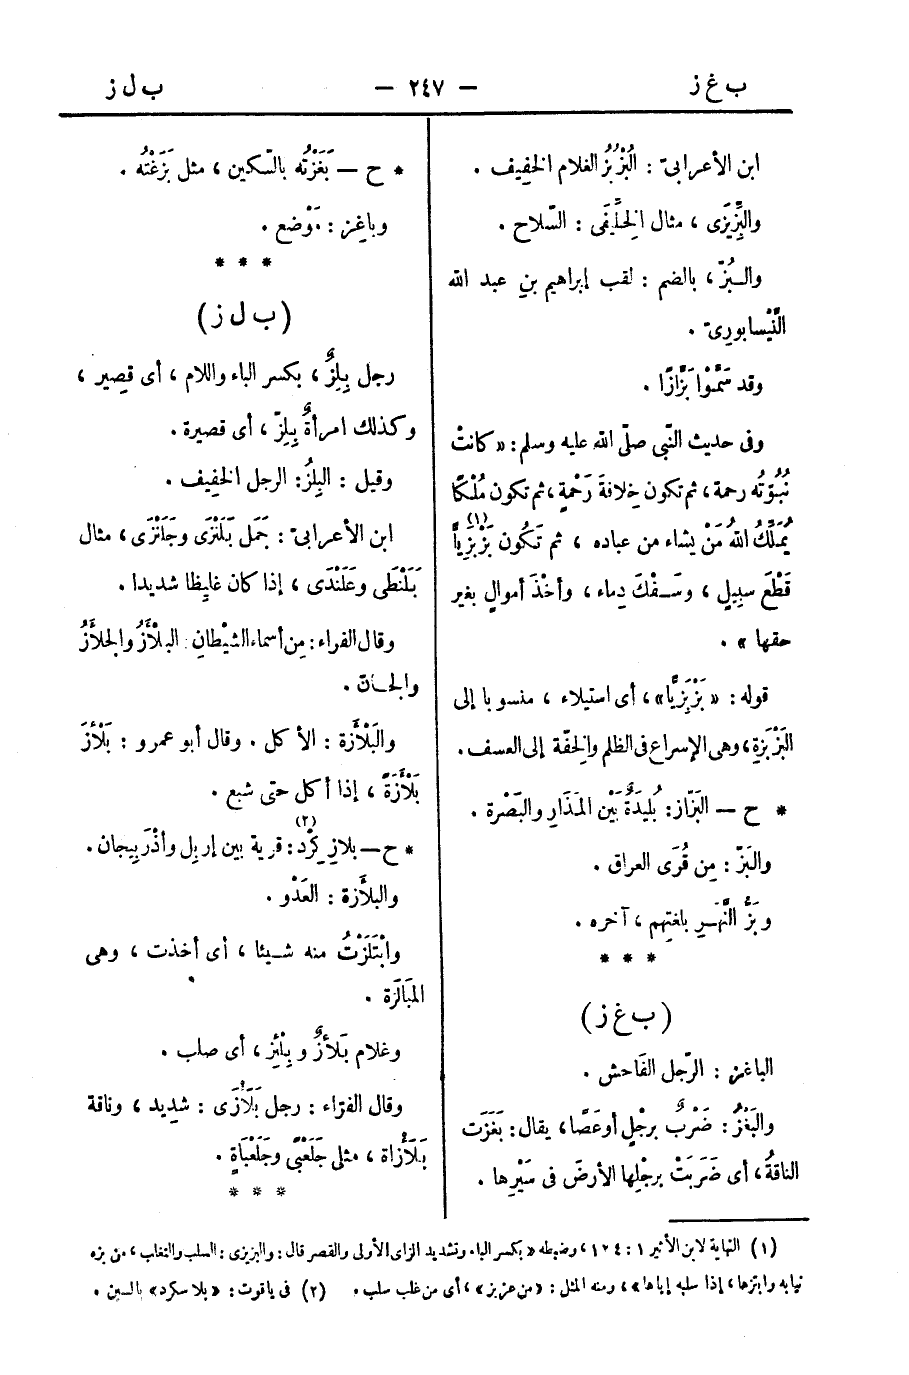 ب غ ز — ٢٤٧ — ب ل ز
ابن الأعرابىّ : البُزْبُز الغلام الخفِيف .
والبِزِّيزَى ، مثال الخِلِّيفَى : السّلاح .
والــبُزّ ، بالضم : لقب إبراهيم بنِ عبد الله
النَّيْسابورىّ .
وقد سَمَّوْا بَزَّازًا .
وفى حديث النّبى صلّى الله عليه وسلم : « كانتْ
نُبُوّتُه رحمة ، ثم تكون خِلافةَ رَحْمةٍ ، ثم تكون مُلْكًا
يُمَلِّكُ اللهُ مَنْ يشاء من عباده ، ثم تَكُون بَزْبَزِيّاً (١)
قَطْعَ سبِيلٍ ، وسَـفْكَ دِماء ، وأخْذَ أموالٍ بغير
حقها » .
قوله : « بَزْبَزِيًّا » ، أى استيلاء ، منسوبا إلى
البَزْبَزةِ ، وهى الإسراع فى الظلم والخِفّة إلى العسف .
* ح — البَزّاز : بُلَيدَةٌ بَيْن المَذَارِ والبَصْرة .
والبَزّ : مِن قُرَى العراق .
وبَزُّ النَّهَـرِ بلغتِهم ، آخره .
* * *
( ب غ ز )
الباغز : الرّجل الفَاحش .
والبَغْزُ : ضَرْبٌ برجْلٍ أو عَصًا ، يقال : بَغَزَت
الناقةُ ، أى ضَرَبَتْ برجْلِها الأرضَ فى سَيْرِها .
* ح — بَغَزْتُه بالسّكين ، مثل بَزَغْتُه .
وباغِز : مَوْضع .
* * *
( ب ل ز )
رجل بِلِزٌ ، بكسر الباء واللام ، أى قصِير ،
وكذلك امرأةٌ بِلِزّ ، أى قصيرة .
وقيل : البِلِزُ : الرجل الخفِيف .
ابن الأعرابىّ : جَمَل بَلَنْزَى وجَلَنْزَى ، مثال
بَلَنْطَى وعَلَنْدَى ، إذا كان غليظا شديدا .
وقال الفراء : مِن أسماء الشيْطانِ : البلْأَزُ والجلْأَزُ
والجـانّ .
والبَلْأَزة : الأكل . وقال أبو عمرو : بَلْأَزَ
بَلْأَزَةً ، إذا أكل حتى شبع .
* ح — بلازِ كِرْد (٢) : قرية بين إربل وأذْرَبِيجان .
والبلْأَزة : العَدْو .
وابْتَلَزْتُ منه شـيئا ، أى أخذت ، وهى
المبَالَزة .
وغلام بَلْأَزٌ و بِلْئِز ، أى صلب .
وقال الفرّاء : رجل بَلَأْزَى : شديد ، وناقة
بَلَأْزاة ، مثلى جَلَعْبًى وجَلَعْبَاةٍ .
* * *
(١) النهاية لابن الأثير ١ : ١٢٤ ، وضبطه « بكسر الباء وتشديد الزاى الأولى والقصر قال : والبزيزى : السلب والتغلب ، من بزه
ثيابه وابتزها ، إذا سلبه إياها » ، ومنه المثل : « من عز بز » ، أى من غلب سلب . (٢) فى ياقوت : « بلاسكرد » بالسين .